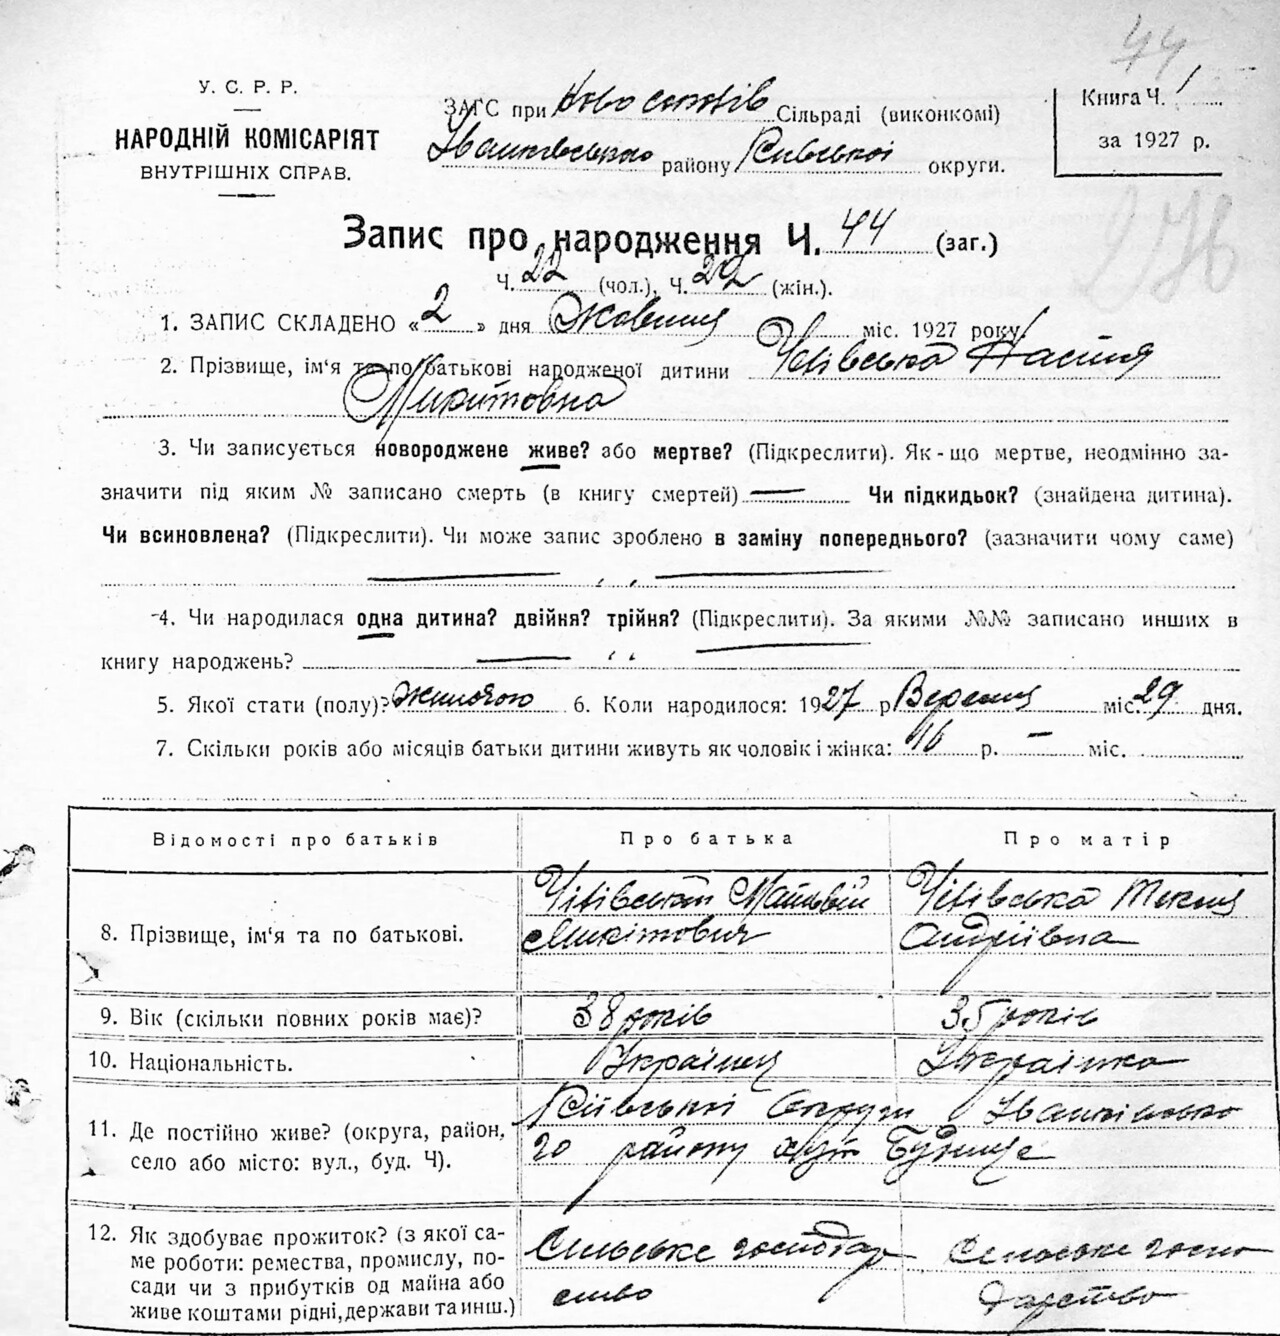 44
У. С. Р. Р.
НАРОДНІЙ КОМІСАРІЯТ
ВНУТРІШНІХ СПРАВ.
ЗАГС при Сільраді (виконкомі)
Іванківського району Київської округи.
Книга Ч. 1
за 1927 р.
Запис про народження Ч. 44 (заг.)
Ч. 22 (чол.), Ч. 22 (жін.).
1. ЗАПИС СКЛАДЕНО «2» дня Жовтня міс. 1927 року
2. Прізвище, ім‘я та по батькові народженої дитини Настя
Микитовна
3. Чи записується новороджене живе? або мертве? (Підкреслити). Як-що мертве, неодмінно за-
значити під яким № записано смерть (в книгу смертей) — Чи підкидьок? (знайдена дитина).
Чи всиновлена? (Підкреслити). Чи може запис зроблено в заміну попереднього? (зазначити чому саме)
4. Чи народилася одна дитина? двійня? трійня? (Підкреслити). За якими №№ записано инших в
книгу народжень?
5. Якої стати (полу)? 6. Коли народилося: 1927 р Вересня міс. 29 дня.
7. Скільки років або місяців батьки дитини живуть як чоловік і жінка: 16 р. — міс.
Відомості про батьків
Про батька
Про матір
8. Прізвище, ім‘я та по батькові.
Микітович
Андріївна
9. Вік (скільки повних років має)?
38 років
35 років
10. Національність.
Українец
Українка
11. Де постійно живе? (округа, район,
село або місто: вул., буд. Ч).
Київської Округи Іванківсько
го району хут Будище
12. Як здобуває прожиток? (з якої са-
ме роботи: ремества, промислу, по-
сади чи з прибутків од майна або
живе коштами рідні, держави та инш.)
Сильське господар
ство
Сельське госпо
дарство